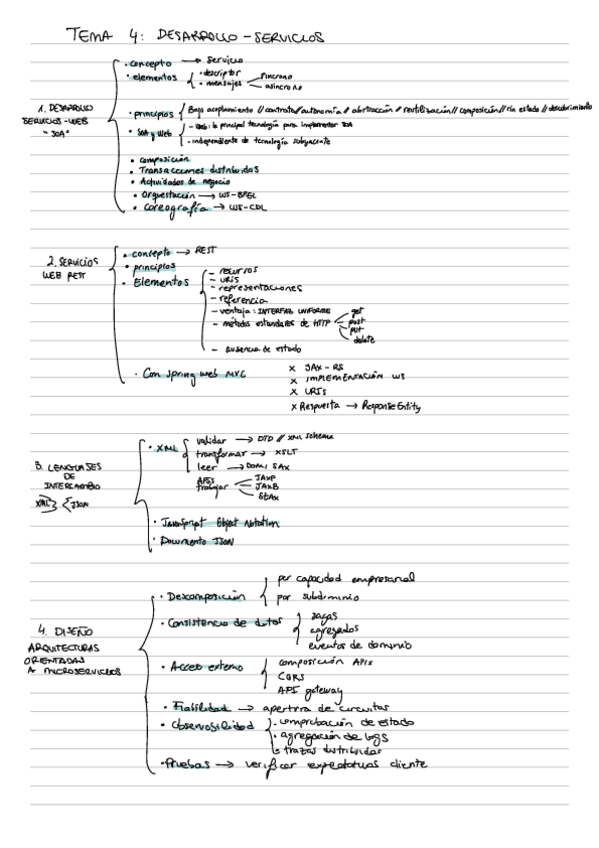 TEMA 4: DESARROLLO - SERVICIOS
1. DESARROLLO
SERVICIOS-WEB
"SOA"
• concepto → Servicio
• elementos - descriptor
• mensajes síncrono
asíncrono
• principios Bajo acoplamiento // contrato // autonomía // abstracción // reutilización // composición // sin estado // descubrimiento
• SOA y Web - Web: la principal tecnología para implementar SOA
- independiente de tecnología subyacente
• composición
• Transacciones distribuidas
• Actividades de negocio
• Orquestación → WS-BPEL
• Coreografía → WS-CDL
2. SERVICIOS
WEB REST
• concepto → REST
• principios
• Elementos - recursos
- URIS
- representaciones
- referencia
- ventaja: INTERFAZ UNIFORME
- métodos estandares de HTTP get
post
put
delete
- ausencia de estado
• Con spring web MVC
x JAX-RS
x IMPLEMENTACIÓN WS
x URIs
x Respuesta → ResponseEntity
3. LENGUAJES
DE
INTERCAMBIO
XML} {JSON
• XML validar → DTD // XML schema
transformar → XSLT
leer → DOM/SAX
APIS trabajar JAXP
JAXB
StAX
• JavaScript Object Notation
• Documento JSON
4. DISEÑO
ARQUITECTURAS
ORIENTADAS
A MICROSERVICIOS
• Descomposición por capacidad empresarial
por subdominio
• Consistencia de datos sagas
agregados
eventos de dominio
• Acceso externo composición APIs
CQRS
API gateway
• Fiabilidad → apertura de circuitos
• Observabilidad - comprobación de estado
• agregación de logs
• trazas distribuidas
• Pruebas → verificar expectativas cliente